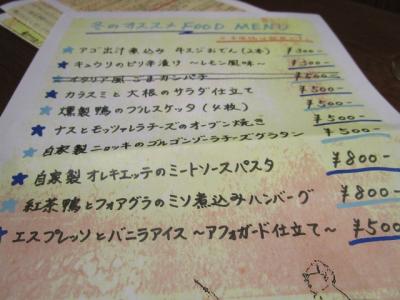 冬のオススメ FOOD MENU
★アゴ出汁煮込み 牛スジおでん(2本) ¥300-
★キュウリのピリ辛漬け ～レモン風味～ ¥300-
★イタリア風 ごまカンパチ ¥500-
★カラスミと大根のサラダ仕立て ¥500-
★燻製鴨のブルスケッタ(4枚) ¥500-
★ナスとモッツァレラチーズのオーブン焼き ¥500-
★自家製ニョッキのゴルゴンゾーラチーズグラタン ¥500-
★自家製オレキエッテのミートソースパスタ ¥800-
★紅茶鴨とフォアグラのミソ煮込みハンバーグ ¥800-
★エスプレッソとバニラアイス ～アフォガード仕立て～ ¥500-